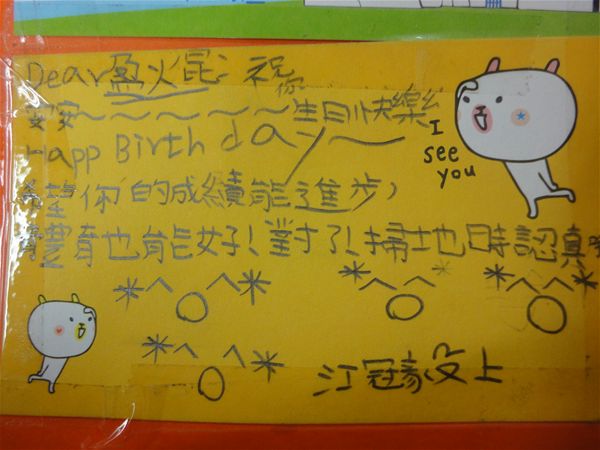 Dear 盈焜: 祝你
安安~~~~~~生日快樂
Happ Birthday~~
希望你的成績能進步,
體育也能好!對了!掃地也時認真
*^o^* *^o^* *^o^*
*^o^* 江冠豪 上
I
see
you